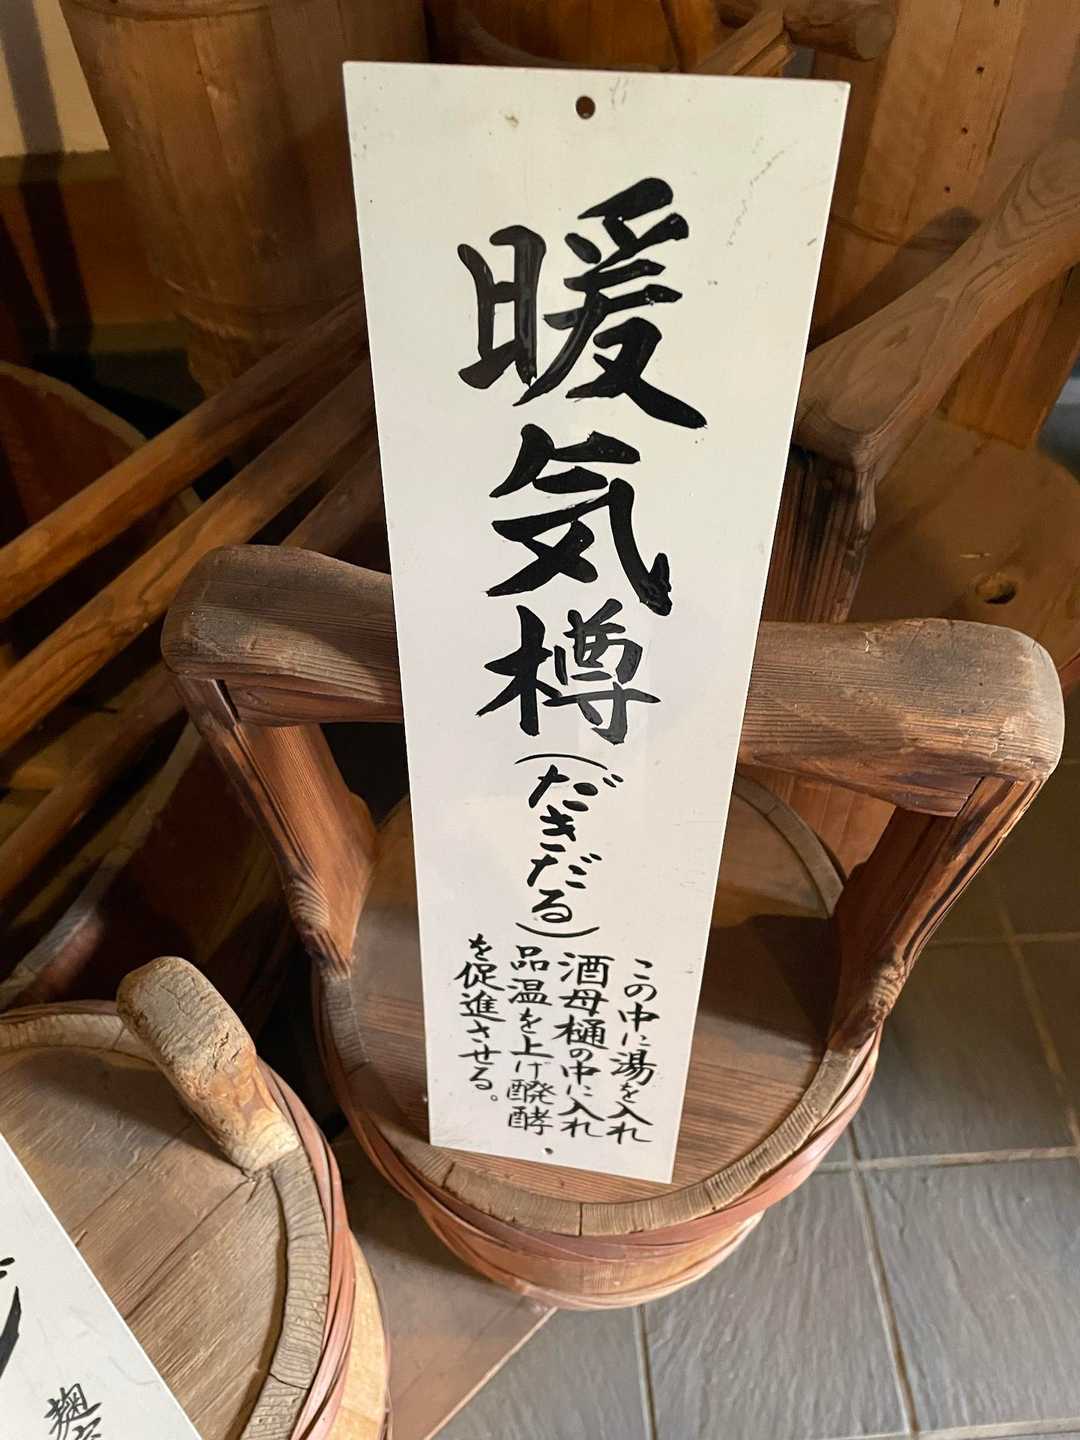 暖気樽
(だきだる)
この中に湯を入れ
酒母桶の中に入れ
品温を上げ醗酵
を促進させる。
麹